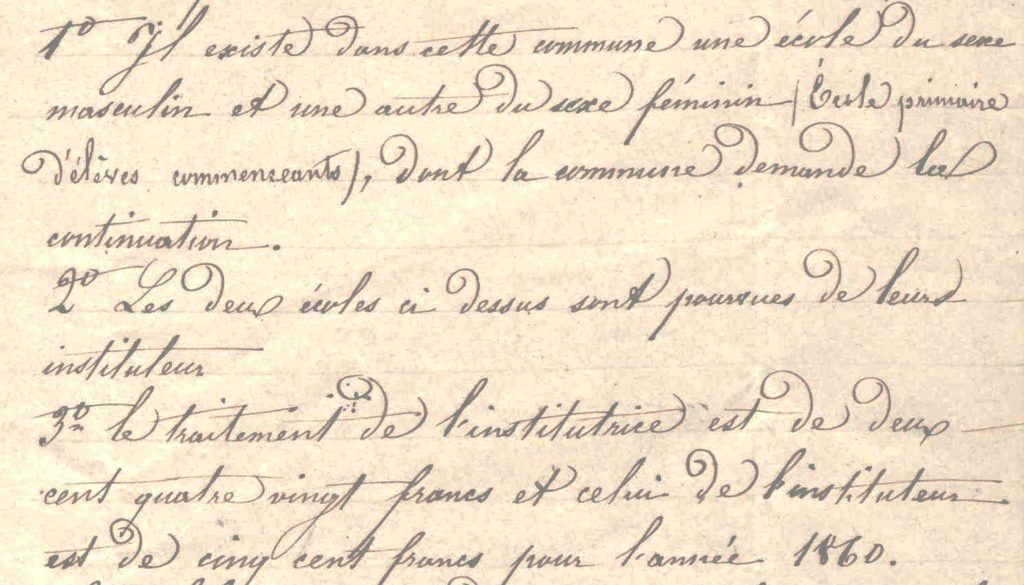 1º Il existe dans cette commune une école du sexe
masculin et une autre du sexe féminin (École primaire
d'élèves commenceants), dont la commune demande la
continuation.
2º Les deux écoles ci dessus sont pourvues de leurs
instituteur
3º le traitement de l'institutrice est de deux
cent quatre vingt francs et celui de l'instituteur
est de cinq cent francs pour l'année 1860.